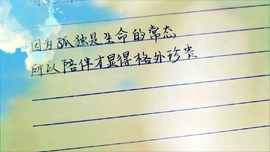 因为孤独是生命的常态
所以陪伴才显得格外珍贵